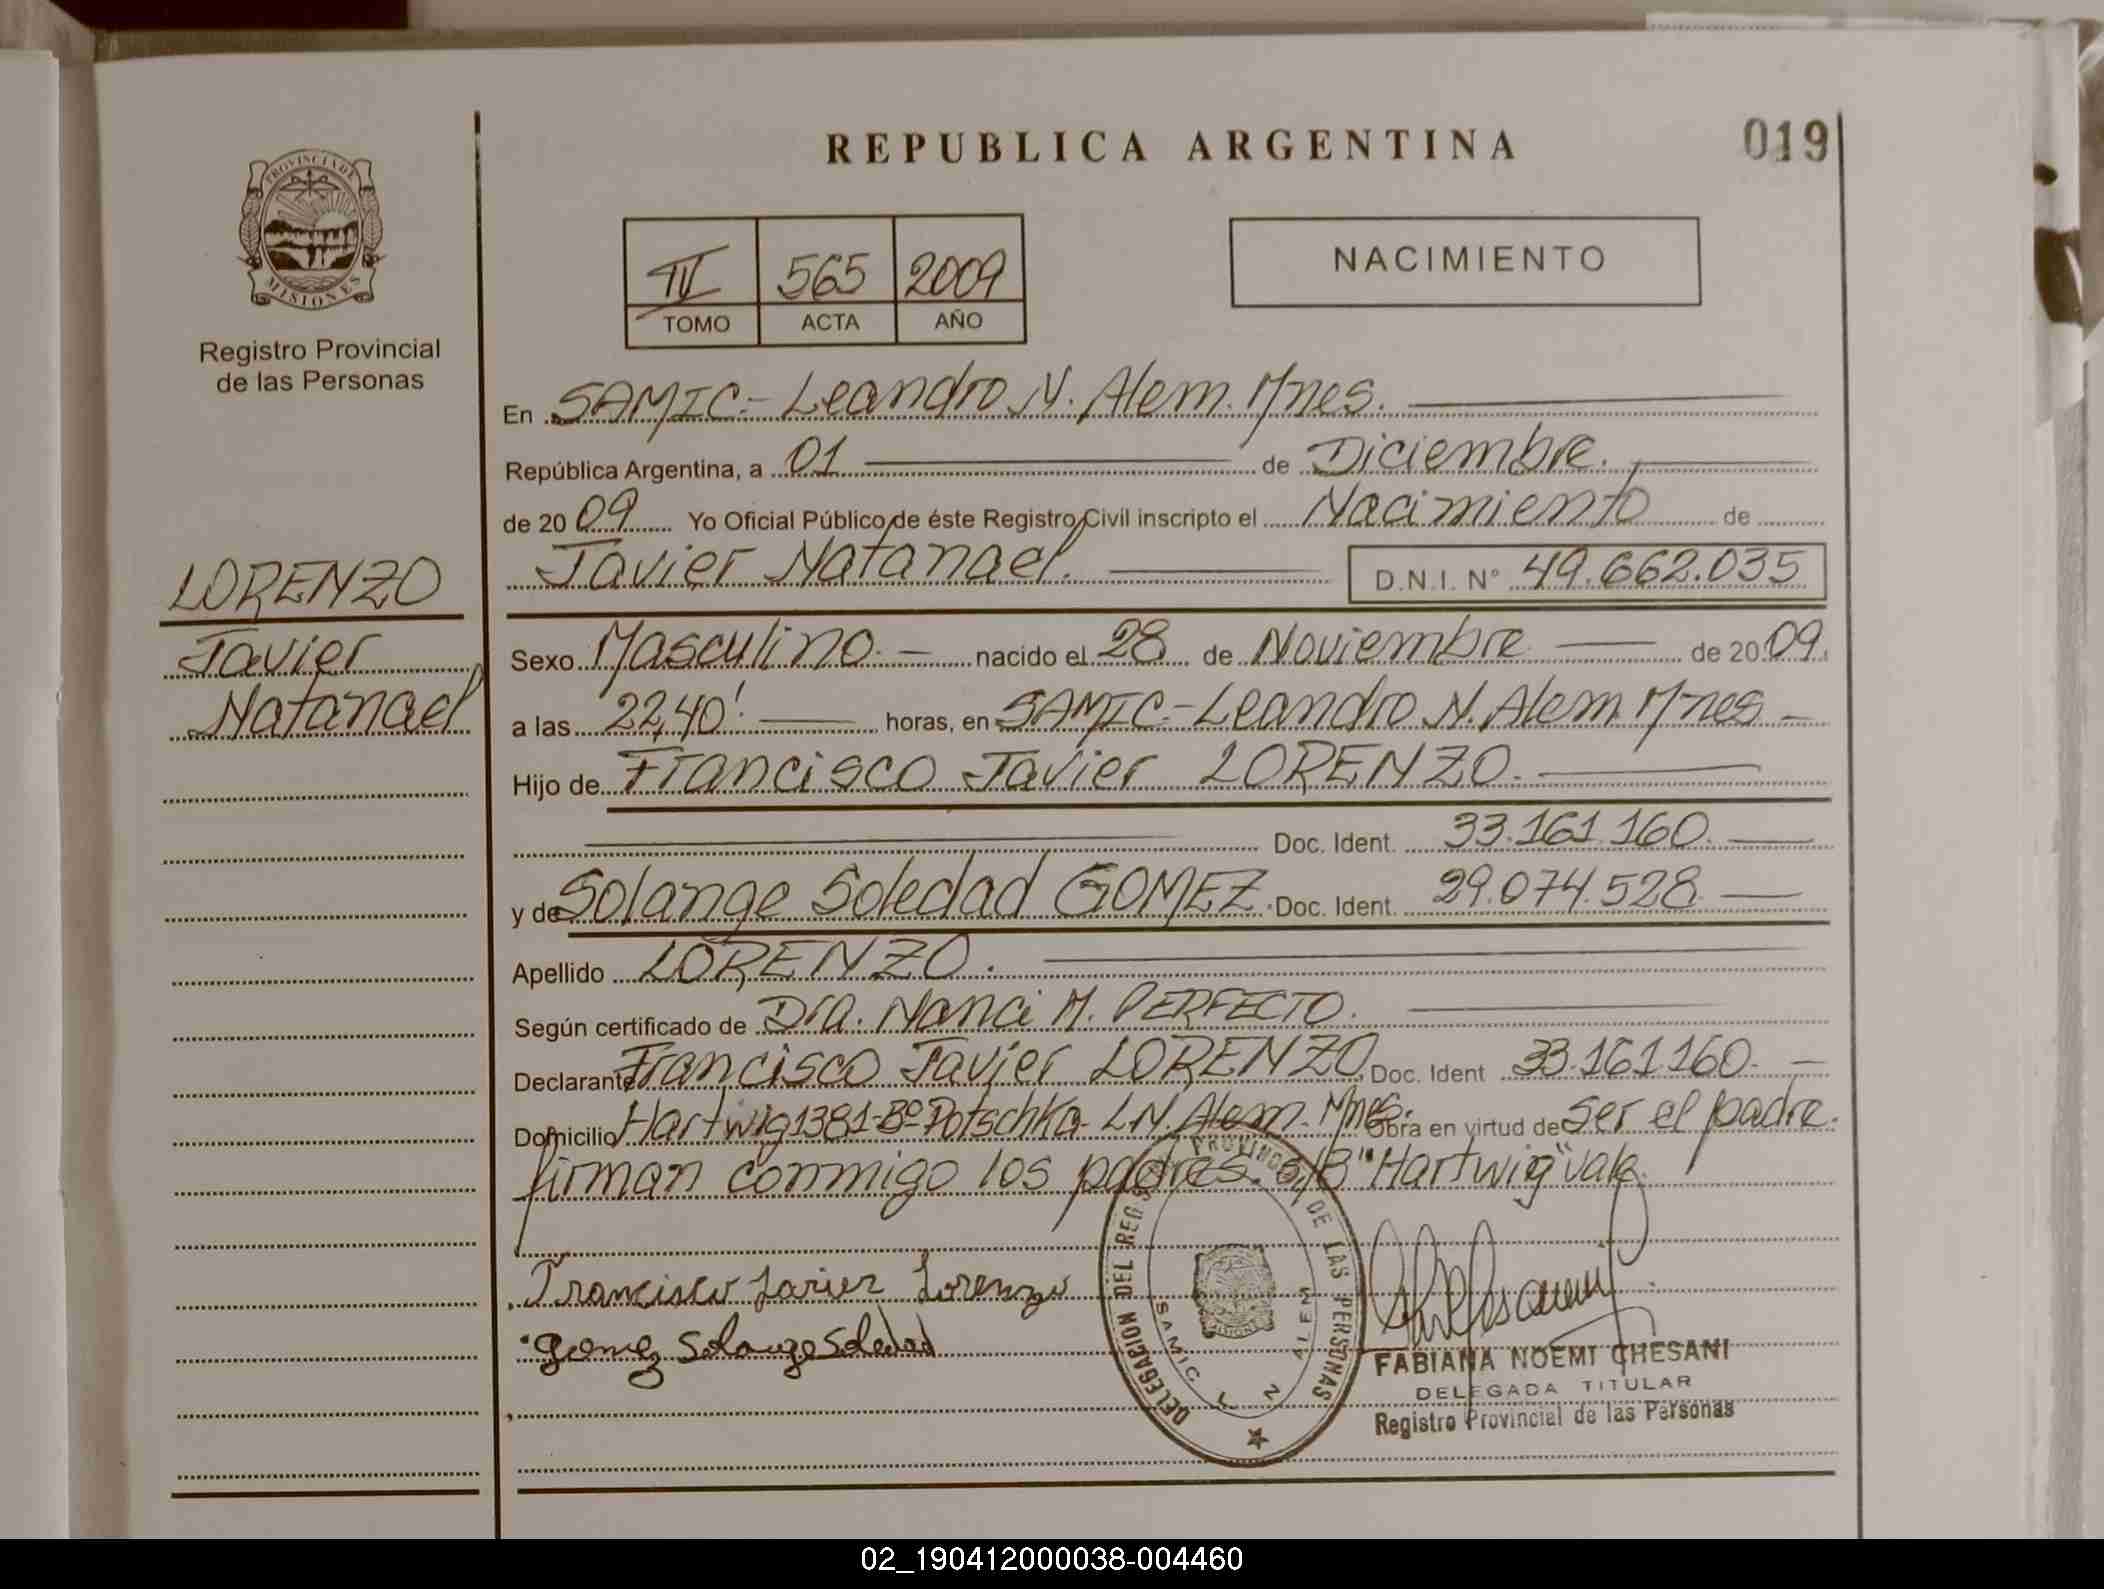 REPUBLICA ARGENTINA
019
PROVINCIA DE
MISIONES
Registro Provincial
de las Personas
IV 565 2009
TOMO ACTA AÑO
NACIMIENTO
En SAMIC.- Leandro N. Alem. Mnes.
República Argentina, a 01 de Diciembre.
de 2009 Yo Oficial Público de éste Registro Civil inscripto el Nacimiento de
Javier Natanael. D.N.I. N° 49.662.035
LORENZO
Javier
Natanael
Sexo Masculino. nacido el 28 de Noviembre de 2009.
a las 22,40'. horas, en SAMIC-Leandro N. Alem Mnes
Hijo de Francisco Javier LORENZO.
Doc. Ident. 33.161.160.
y de Solange Soledad GOMEZ. Doc. Ident. 29.074.528.
Apellido LORENZO.
Según certificado de Dra. Nanci M. PERFECTO.
Declarante Francisco Javier LORENZO. Doc. Ident 33.161.160.
Domicilio Hartwig 1381-Bº Potschka- L.N. Alem. Mnes. Obra en virtud de ser el padre.
firman conmigo los padres. S/B "Hartwig" vale.
Francisco Javier Lorenzo
Gomez Solange Soledad
DELEGACION DEL REG. PROVINCIAL DE LAS PERSONAS
SAMIC L N ALEM
FABIANA NOEMI CHESANI
DELEGADA TITULAR
Registro Provincial de las Personas
02_190412000038-004460